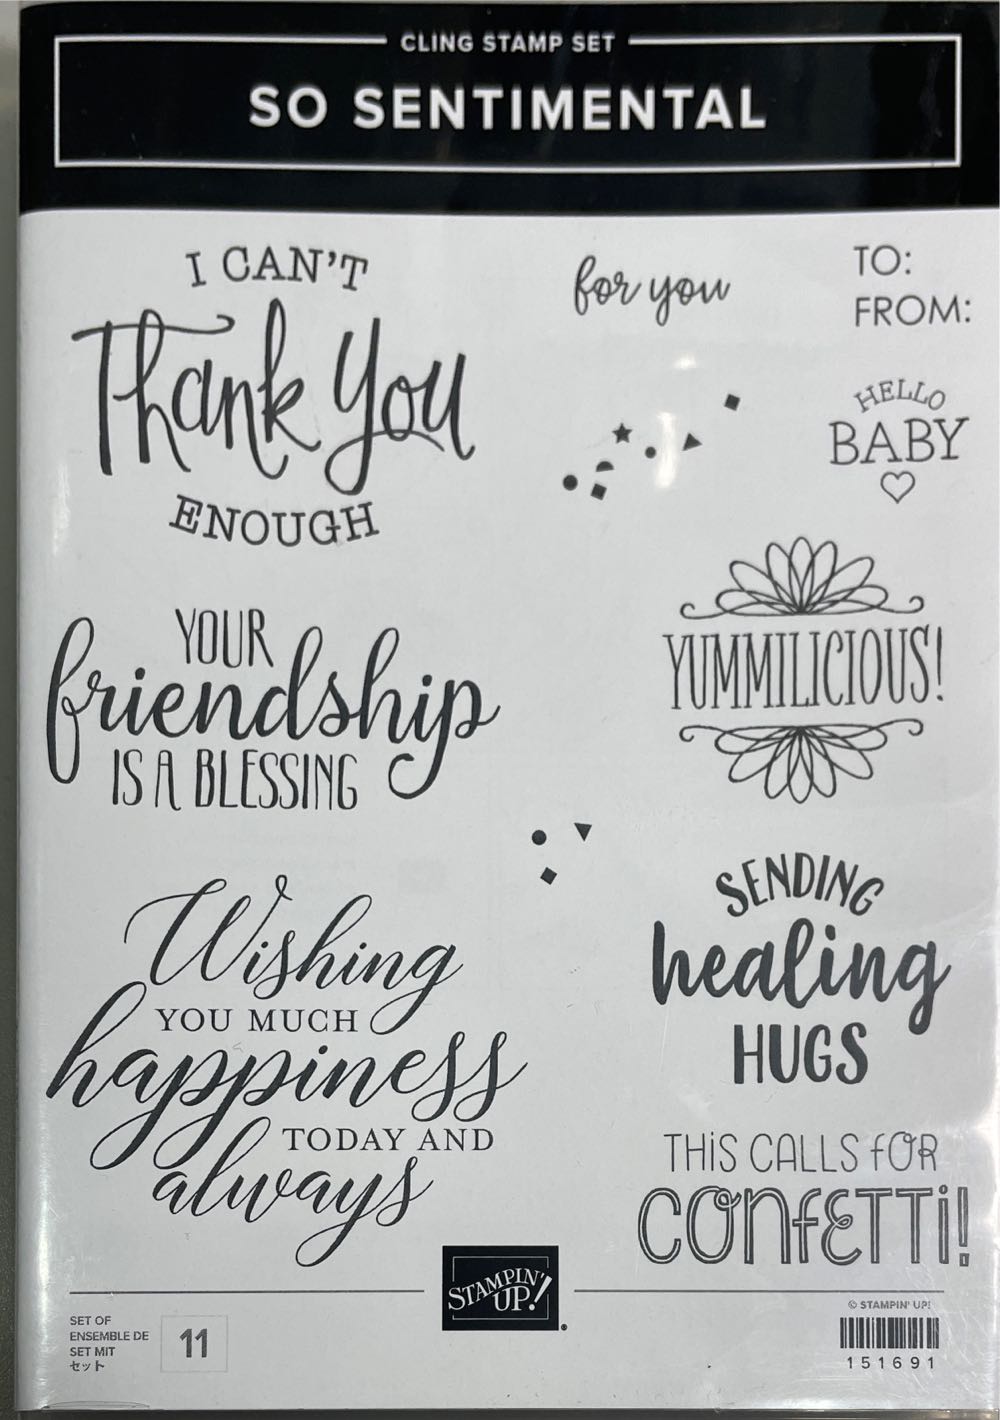 CLING STAMP SET
SO SENTIMENTAL
I CAN'T
Thank You
ENOUGH
for you
TO:
FROM:
HELLO
BABY
YOUR
friendship
IS A BLESSING
YUMMILICIOUS!
Wishing
YOU MUCH
happiness
TODAY AND
always
SENDING
healing
HUGS
THiS CALLS fOR
CONfETTi!
STAMPIN'
UP!®
SET OF
ENSEMBLE DE
SET MIT
セット
11
© STAMPIN' UP!
151691